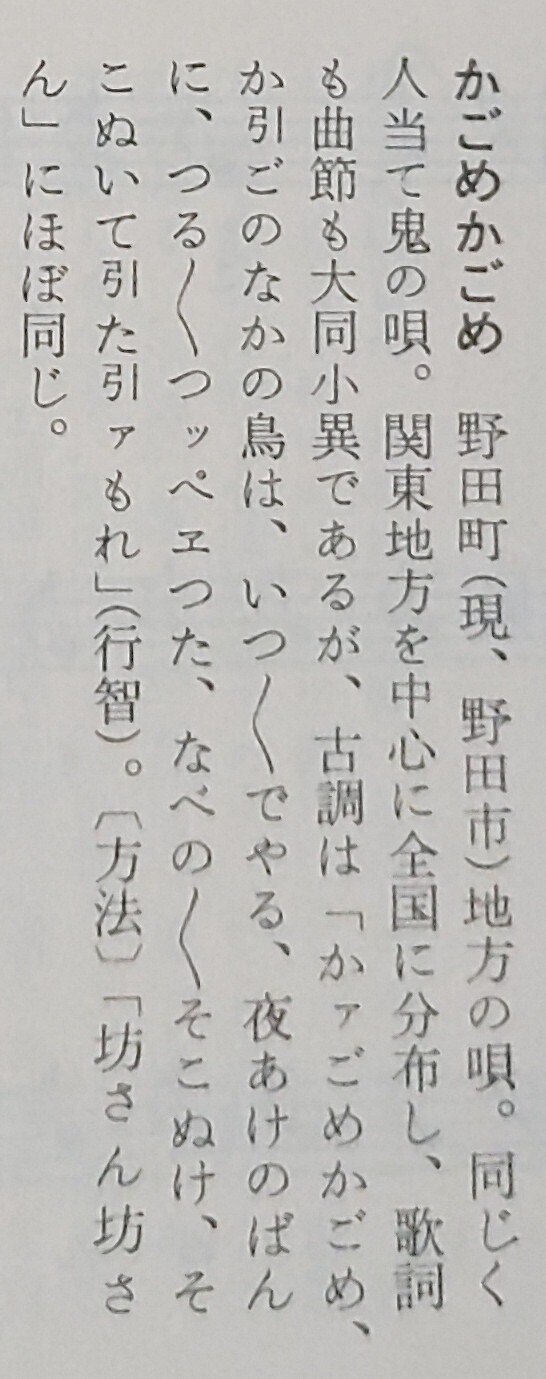 かごめかごめ　野田町（現、野田市）地方の唄。同じく
人当て鬼の唄。関東地方を中心に全国に分布し、歌詞
も曲節も大同小異であるが、古調は「かァごめかごめ、
か引ごのなかの鳥は、いつ〳〵でやる、夜あけのばん
に、つる〳〵つッペヱつた、なべの〳〵そこぬけ、そ
こぬいて引た引ァもれ」（行智）。〔方法〕「坊さん坊さ
ん」にほぼ同じ。